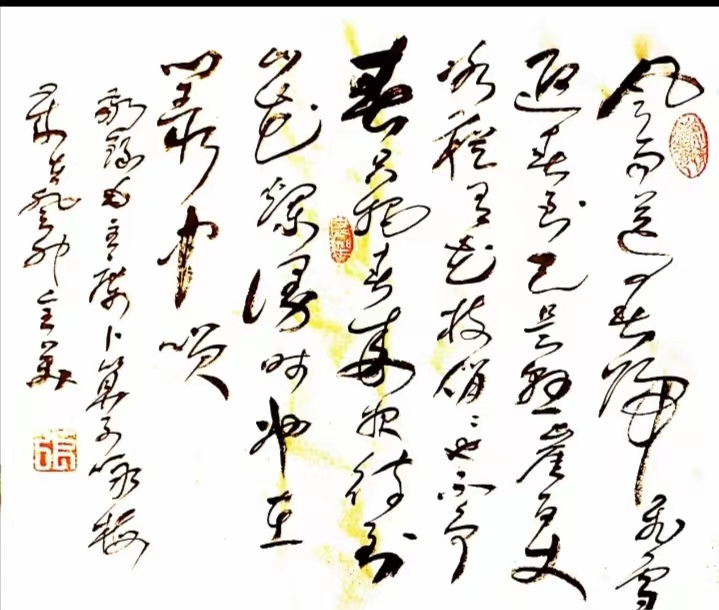 风雨送春歸飛雪
迎春到已是懸崖百丈
冰犹有花枝俏〻也不争
春只把春來报待到
山花爛漫时她在
叢中咲
敬錄毛主席卜算子咏梅